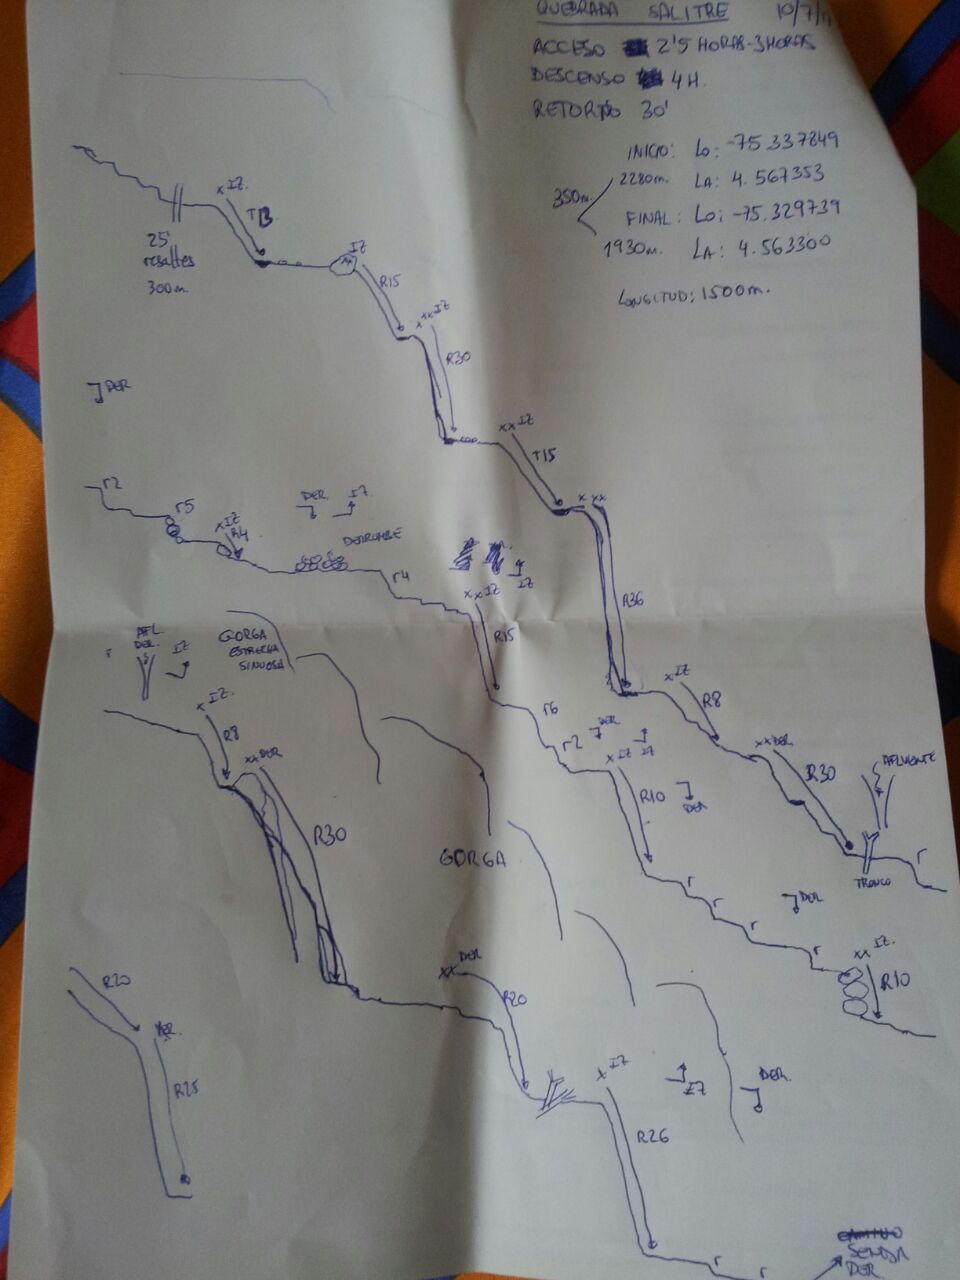 QUEBRADA SALITRE 10/7/11
ACCESO 2'5 HORAS-3HORAS
DESCENSO 4H.
RETORNO 30'
INICIO: LO: -75.337849
2280m. LA: 4.567353
350m.
FINAL: LO: -75.329739
1930m. LA: 4.563300
LONGITUD: 1500m.
x IZ.
T13
25
resaltes
300m.
IZ
R15
xxx IZ
R30
DER
xx IZ
T15
x xx
R36
r2
r5
x IZ
R4
DER. IZ
DERRUMBE
r4
IZ
xx IZ
R15
r6
r2
DER
IZ
x IZ
R10
DER
r
r
r
DER
r
xx IZ.
R10
x IZ
R8
xx DER
R30
AFLUENTE
TRONCO
r
r
AFL.
DER.
IZ
GORGA
ESTRECHA
SINUOSA
x IZ.
R8
xx DER
R30
GORGA
xx DER
R20
x IZ
R26
IZ
DER.
R20
DER.
R25
r
r
SENDA
DER